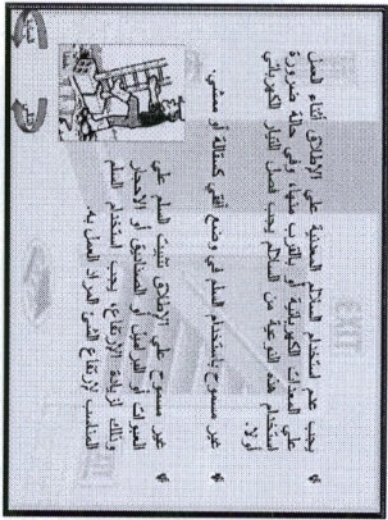 يجب عدم استخدام السلالم المعدنية على الإطلاق أثناء العمل
على المعدات الكهربائية أو بالقرب منها، وفى حالة ضرورة
استخدام هذه النوعية من السلالم يجب فصل التيار الكهربائي
أولا.
غير مسموح باستخدام السلم في وضع أفقي كسقالة أو ممشى.
غير مسموح على الإطلاق تثبيت السلم على
العبوات أو البراميل أو الصناديق أو الأحجار
وذلك لزيادة الإرتفاع، يجب استخدام السلم
المناسب لإرتفاع الشئ المراد العمل به.
EXIT